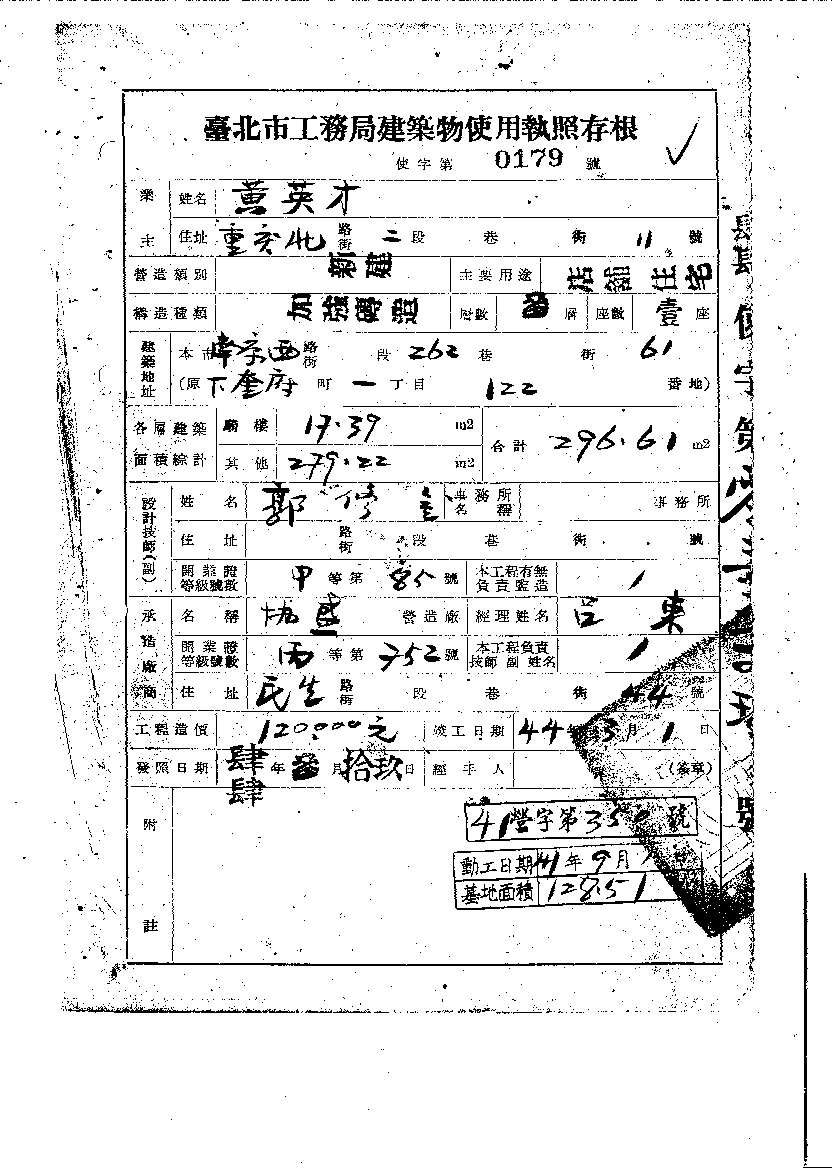 臺北市工務局建築物使用執照存根
使字第 0179 號
業主 姓名 黃英才
住址 重慶北 路街 二 段 巷 街 11 號
營造類別 新建 主要用途 店鋪住宅
構造種類 加強磚造 層數 層 座數 壹 座
建築地址 本市 南京西 路街 段 262 巷 街 61
(原 下奎府 町 一 丁目 122 番地)
各層建築面積綜計 騎樓 17.39 m2 合計 296.61 m2
其他 279.22 m2
設計技師(副) 姓名 郭修 事務所名稱 事務所
住址 路街 段 巷 街 號
開業證等級號數 甲 等第 85 號 本工程有無負責監造 /
承造廠商 名稱 協盛 營造廠 經理姓名 呂東
開業證等級號數 丙 等第 752 號 本工程負責技師副姓名 /
住址 民生 路街 段 巷 街 44 號
工程造價 120.000元 竣工日期 44年 3月 1日
發照日期 肆肆 年 月 拾玖 日 經手人 (簽章)
附註
41營字第350號
動工日期 41年9月 日
基地面積 128.51
肆肆使字第零壹 號